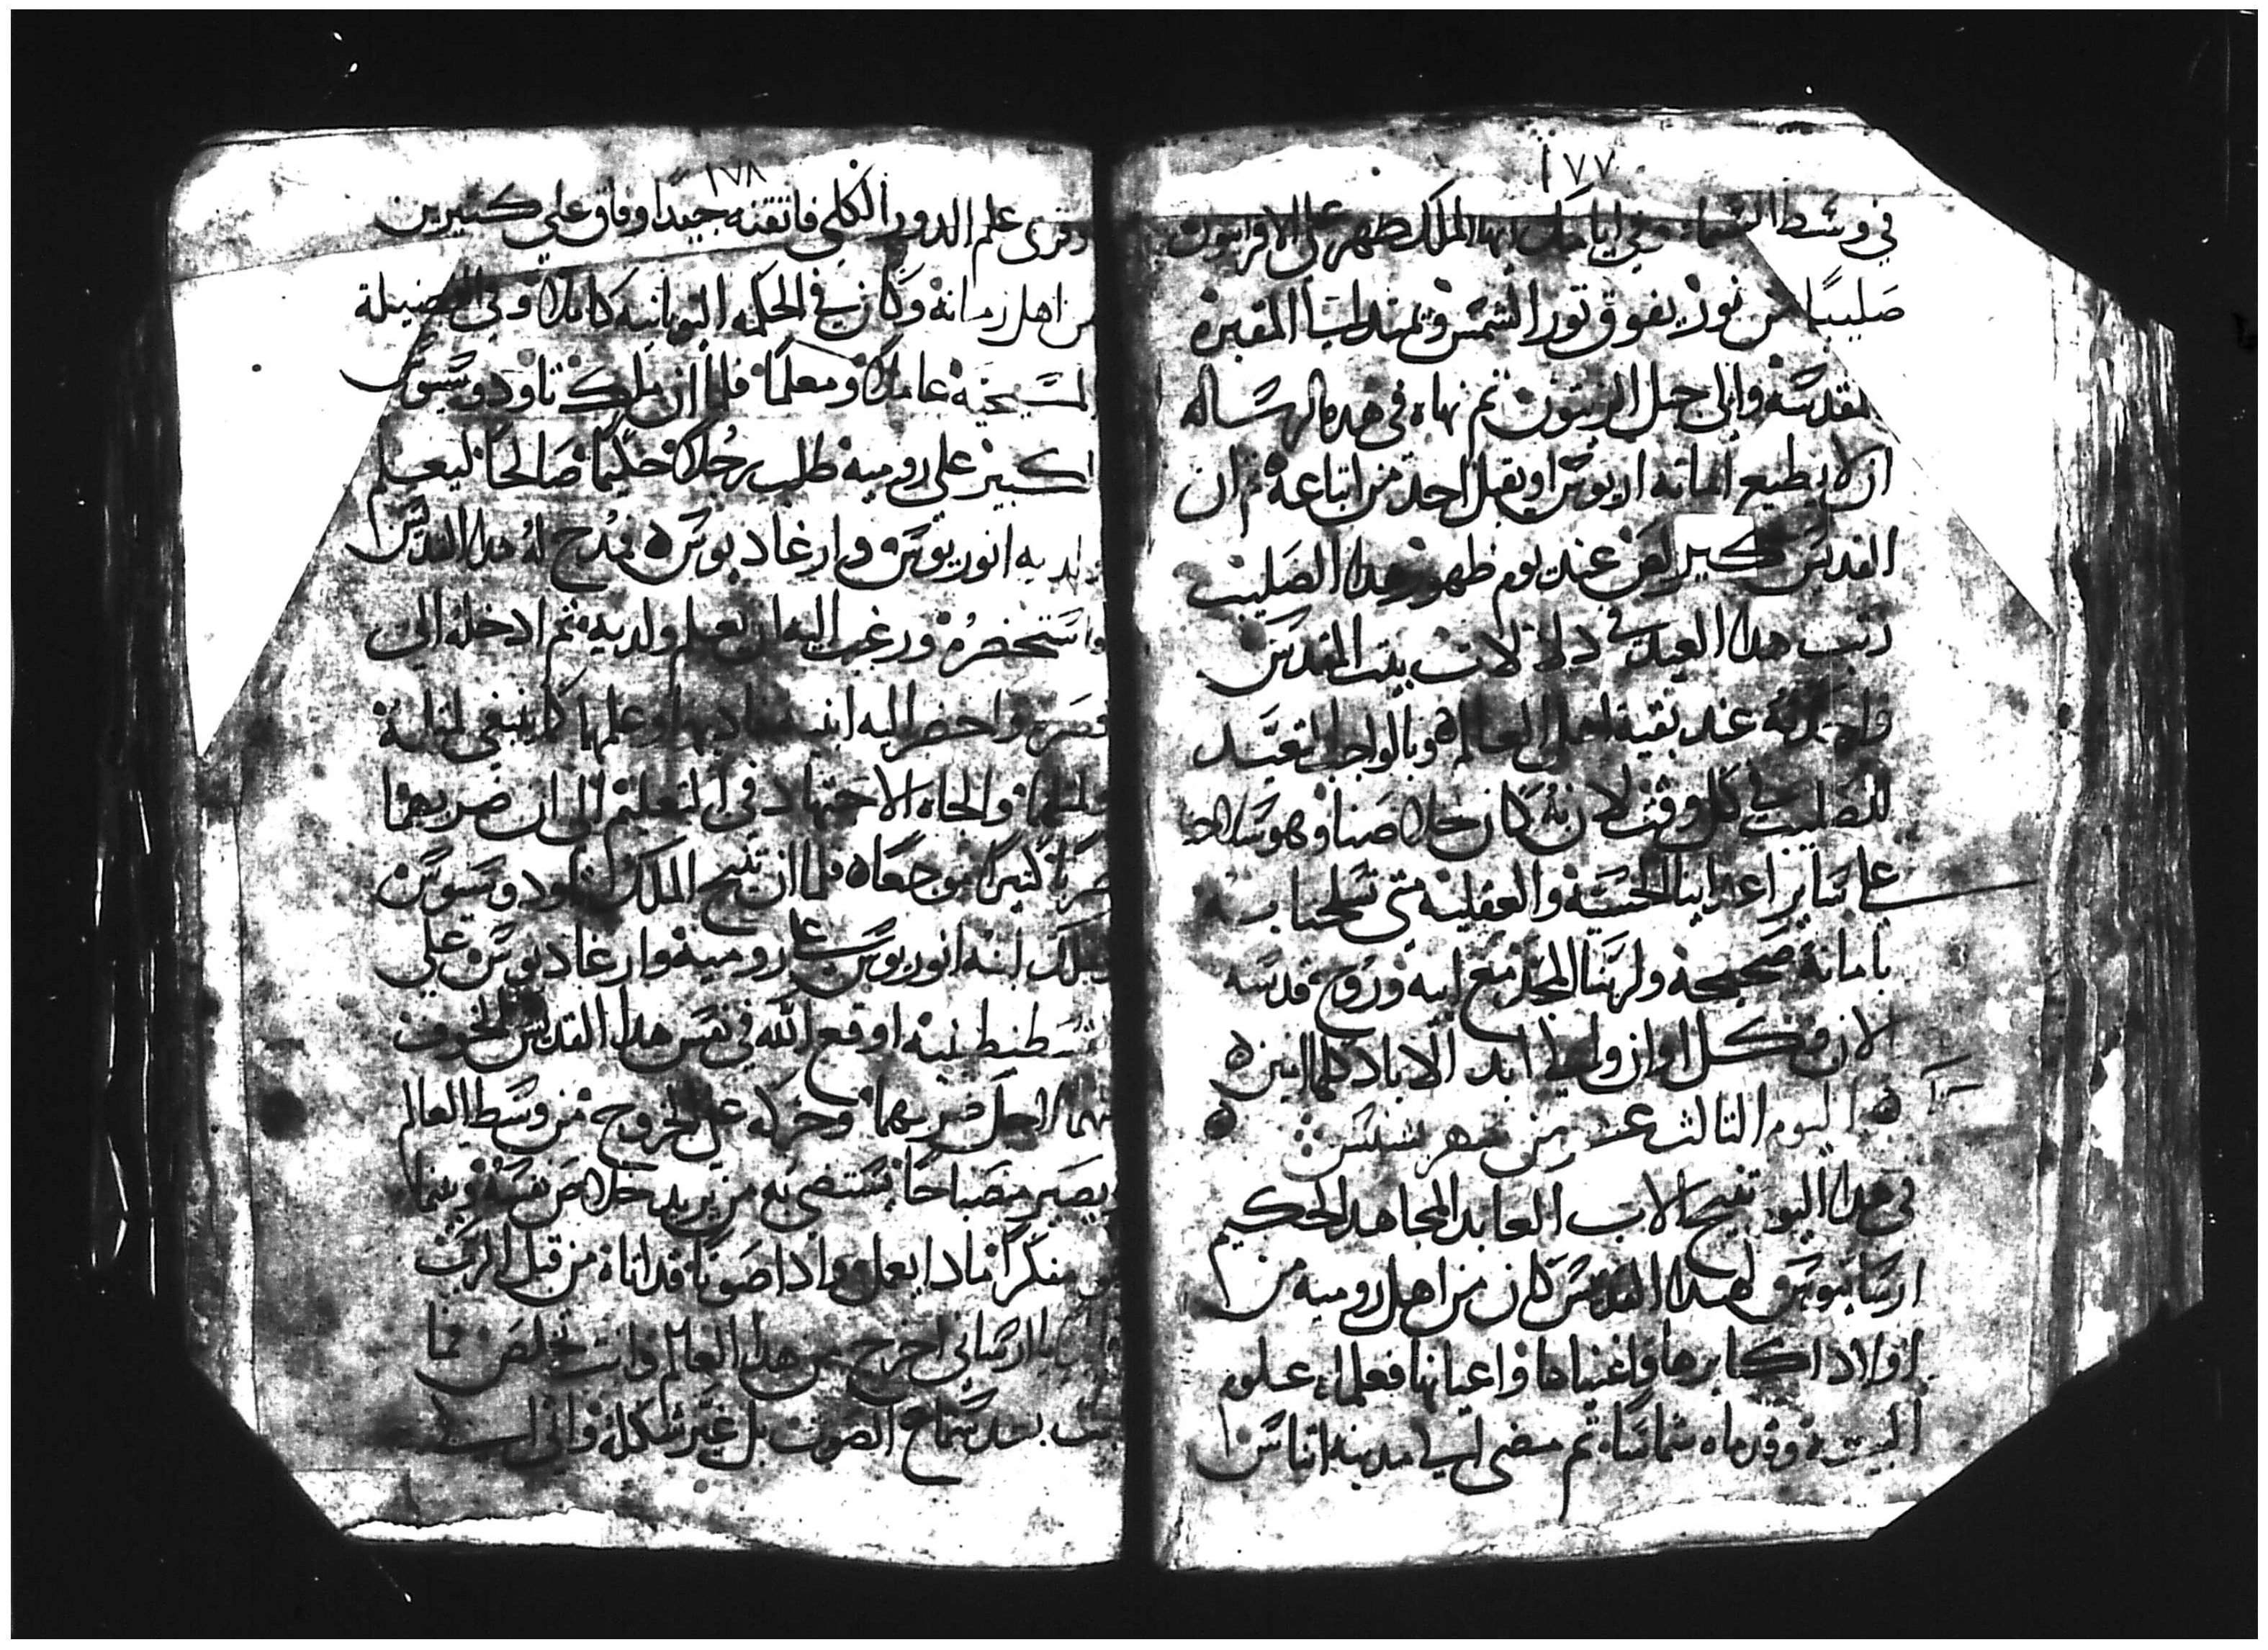 ١٧٧
في وسط السماء وفي ايامك ايها الملك ظهر على الاقرانيون
صليبًا من نور يفوق نور الشمس ويمتد لب المقبره
المقدسه والى جبل الزيتون ثم نهاه في هده الرساله
ان لا يطيع امانه اريوس او يقبل احد من اتباعه ثم ان
القديس كيرلص عند يوم ظهور هدا الصليب
رتب هدا العيد في دلك لان بيت المقدس
عند بقية اهل العالم وبالواجب التعبد
للصليب في كل وقت لانه كان خلاصنا وهو سلاحنا
على ساير اعداينا الحسيه والعقلية متى تسلحنا به
بامانة صحيحة ولربنا المجد مع ابيه وروح قدسه
الان وكل اوان والى ابد الاباد كلها امين ه
ه اليوم التالت عشر من شهر بشنس ه
في هدا اليوم تنيح الاب العابد المجاهد الحكيم
ارسانيوس هدا القديس كان من اهل روميه من
اولاد اكابرها واغنياها واعيانها فعلماه علوم
البيعة وقدماه شماسا ثم مضى الى مدينه اتناس
١٧٨
وقرى علم الدور الكلي فاتقنه جيدًا وفاق علي كتيرين
من اهل زمانه وكان في الحكمه اليونانيه كاملا وفي الفضيلة
المسيحية عاملا ومعلمًا فلما ان ملك تاودوسيوس
الكبير علي روميه طلب رجلا حكيما صالحا ليعلم
ولديه انوريوس وارغاديوس ه فمدح له هدا القديس
واستحضره ورغب اليه ان يعلم ولديه ثم ادخله الى
قصره واحضر اليه ابنيه فادبهما وعلمهما كما ينبغي لمتله
والجاه الاجتهاد في التعليم الى ان ضربهما
ضربًا كتيرًا موجعًا ه فلما ان تنيح الملك تاودوسيوس
وملك ابنه انوريوس على رومية وارغاديوس علي
قسطنطينية اوقع الله في نفس هدا القديس الخوف
منهما لاجل ضربهما وحركه على الخروج من وسط العالم
ويصير مصباحًا يستضي به من يريد خلاص نفسه وبينما
مفكرًا مادا يعمل وادا صوتا قد اتاه من قبل الرب
يا ارساني اخرج من هدا العالم وانت تخلص فما
بعد سماع الصوت بل غير شكله واتى الى